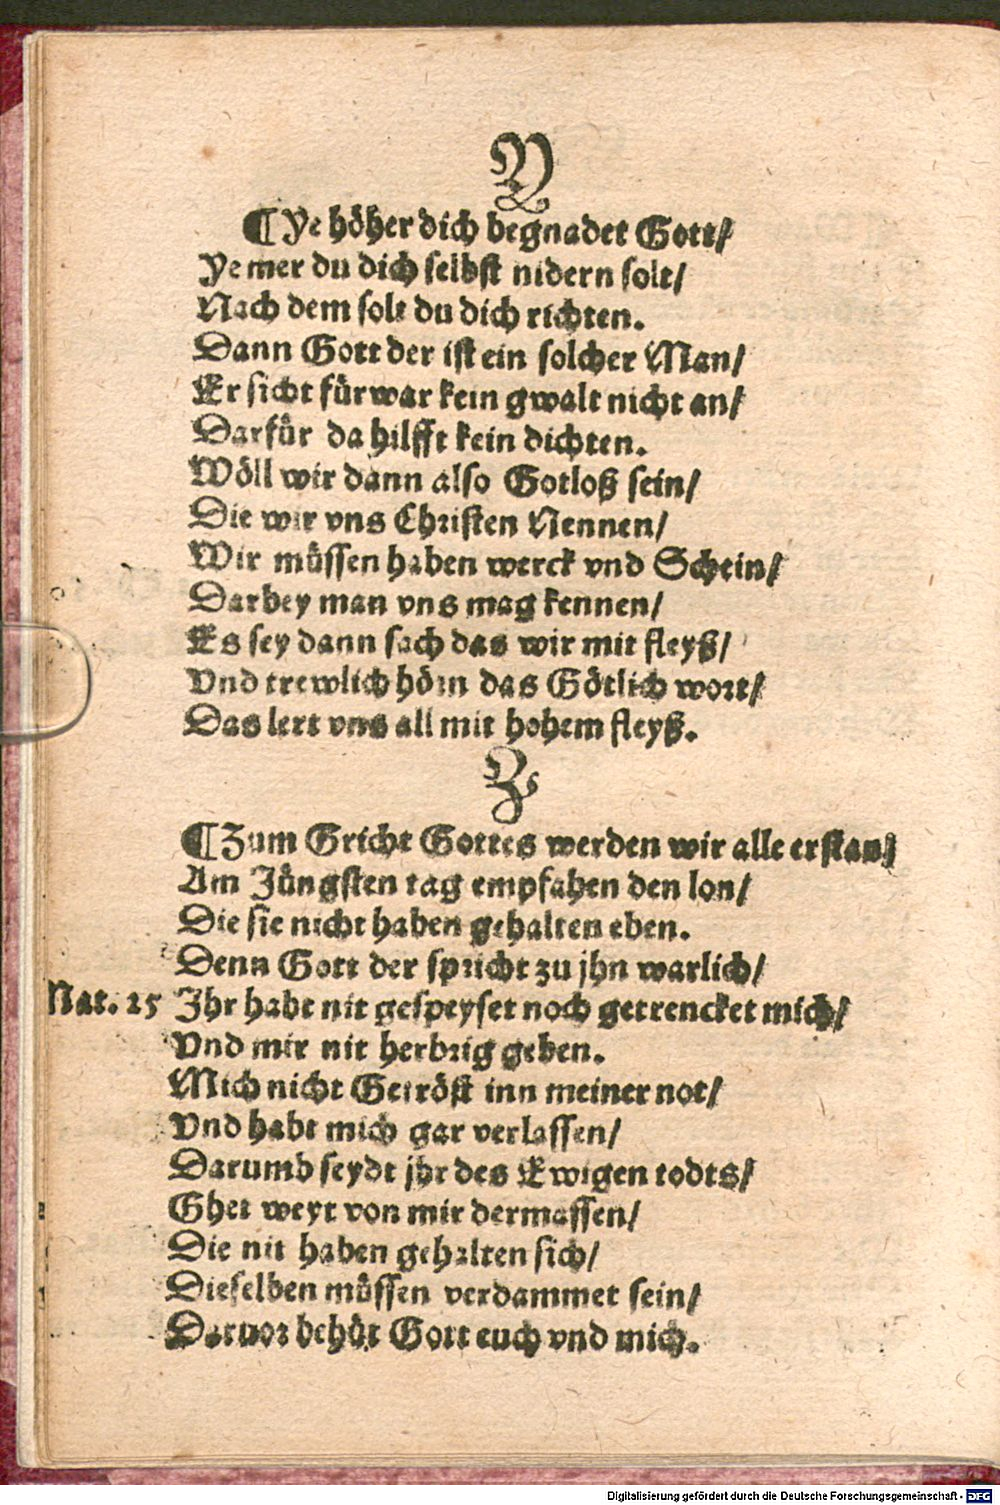 Y
¶ Ye höher dich begnadet Gott/
Ye mer du dich selbst nidern solt/
Nach dem solt du dich richten.
Dann Gott der ist ein solcher Man/
Er sicht fürwar kein gwalt nicht an/
Darfür da hilfft kein dichten.
Wöll wir dann also Gotloß sein/
Die wir vns Christen Nennen/
Wir müssen haben werck vnd Schein/
Darbey man vns mag kennen/
Es sey dann sach das wir mit fleyß/
Vnd trewlich hörn das Götlich wort/
Das lert vns all mit hohem fleyß.
Z
¶ Zum Gricht Gottes werden wir alle erstan/
Am Jüngsten tag empfahen den lon/
Die sie nicht haben gehalten eben.
Denn Gott der spricht zu jhn warlich/
Mat. 25 Jhr habt nit gespeyset noch getrencket mich/
Vnd mir nit herbrig geben.
Mich nicht Getröst inn meiner not/
Vnd habt mich gar verlassen/
Darumb seydt jhr des Ewigen todts/
Ghet weyt von mir dermassen/
Die nit haben gehalten sich/
Dieselben müssen verdammet sein/
Daruor behüt Gott euch vnd mich.
Digitalisierung gefördert durch die Deutsche Forschungsgemeinschaft - DFG